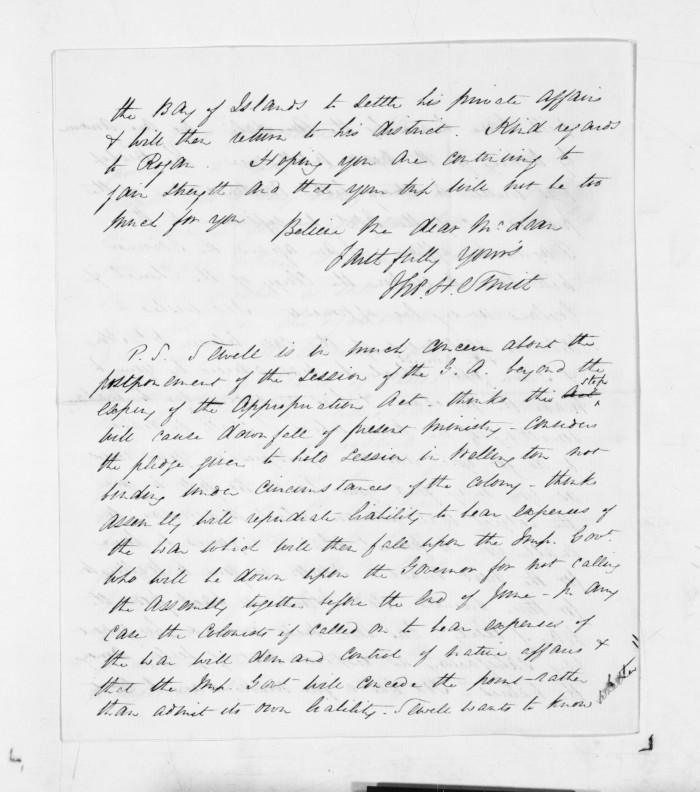 the Bay of Islands to settle his private affairs
& will then return to his district. Kind regards
to Rogan. Hoping you are continuing to
gain strength and that your trip will not be too
much for you Believe me dear McLean
faithfully yours
Thos. H. Smith
P.S. Sewell is in much concern about the
postponement of the Session of the G. A. beyond the
expiry of the Appropriation Act - thinks this Act stop
will cause downfall of present ministry - considers
the pledge given to hold session in Wellington not
binding under circumstances of the colony - thinks
Assembly will repudiate liability to bear expenses of
the war which will then fall upon the Imp. Govt.
who will be down upon the Governor for not calling
the Assembly together before the end of June - In any
case the colonists if called on to bear expenses of
the war will demand control of native affairs &
that the Imp. Govt will concede the point - rather
than admit its own liability - Sewell wants to know
whether